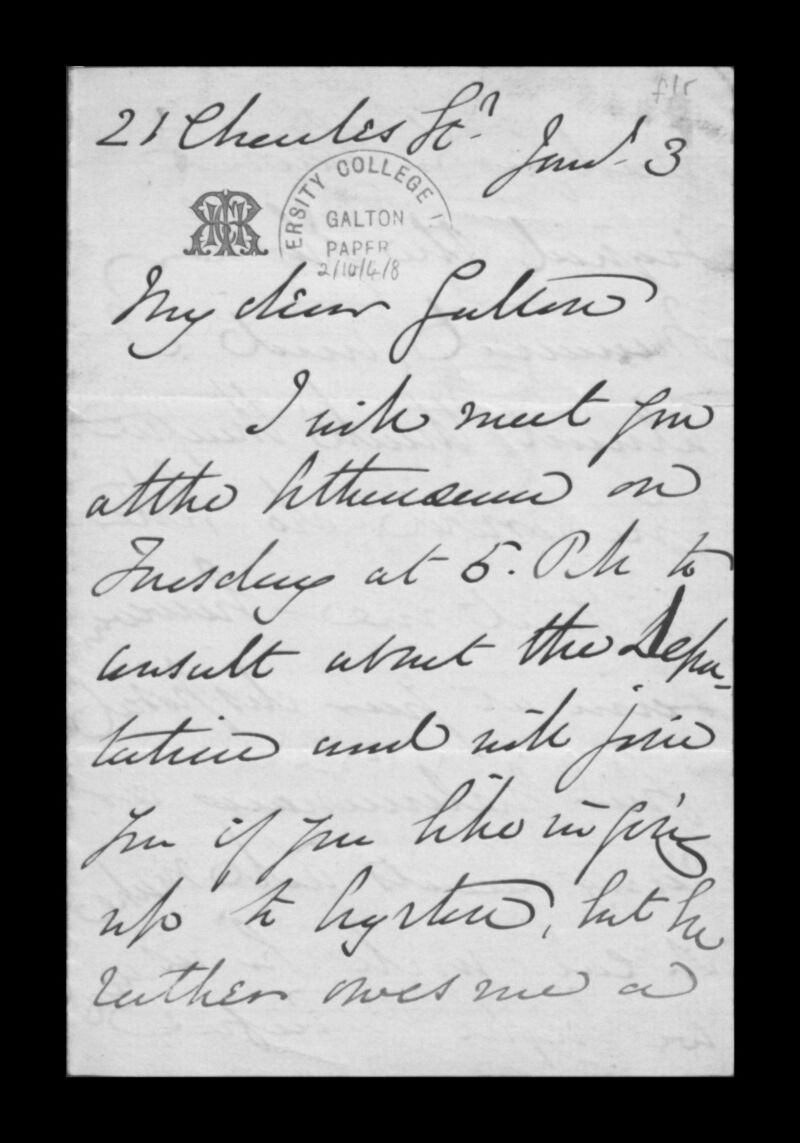 f1r
21 Charles St.
Jan. 3
ERSITY COLLEGE
GALTON
PAPER
2/10/4/8
My dear Galton
I will meet you
at the Athenaeum on
Tuesday at 5. PM to
consult about the Depu-
tation and will join
you if you like in going
up to, but he
rather owes me a